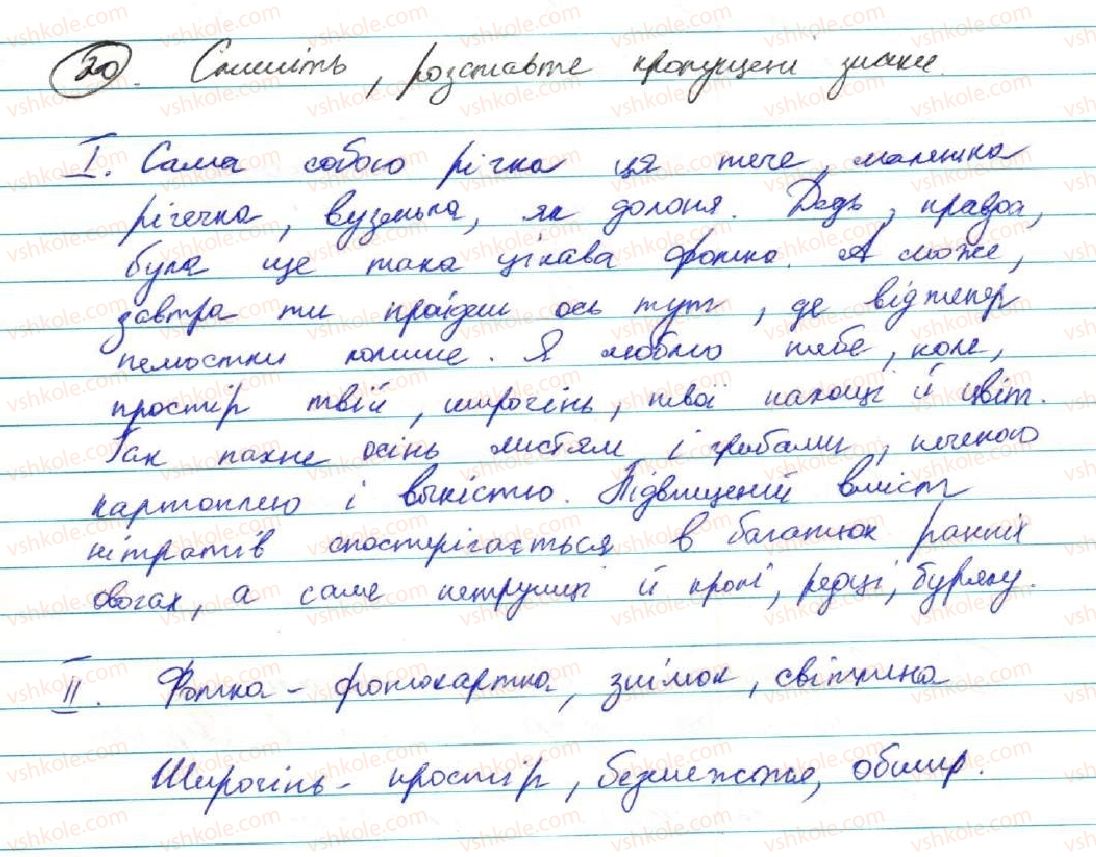 20. Спишіть, розставте пропущені знаки.
I. Сама собою річка ця тече, маленька
річечка, вузенька, як долоня. Десь, правда,
була ще така цікава фотка. А може,
завтра ти прийдеш ось тут, де відтепер
пелюстки лише. Я люблю тебе, поле,
простір твій, широчінь, твої пахощі й цвіт.
Так пахне осінь листям і грибами, печеною
картоплею і вогкістю. Підвищений вміст
нітратів спостерігається в багатьох ранніх
овочах, а саме петрушці й кропі, редці, буряку.
II. Фотка – фотокартка, знімок, світлина
Широчінь – простір, безмежжя, обшир.